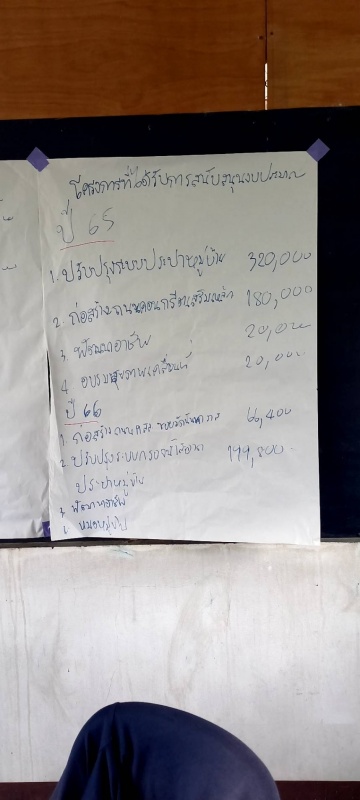 โครงการที่ได้รับการสนับสนุนงบประมาณ
ปี 65
1. ปรับปรุงระบบประปาหมู่บ้าน 320,000
2. ก่อสร้างถนนคอนกรีตเสริมเหล็ก 180,000
3. พัฒนาอาชีพ 20,000
4 อบรมสุขภาพเคลื่อนที่ 20,000
ปี 66
1. ก่อสร้างถนน คสล ซอย 66,400
2. ปรับปรุงระบบกรอง 199,800
ประปาหมู่บ้าน
3 พัฒนาอาชีพ
หมอหมู่บ้าน